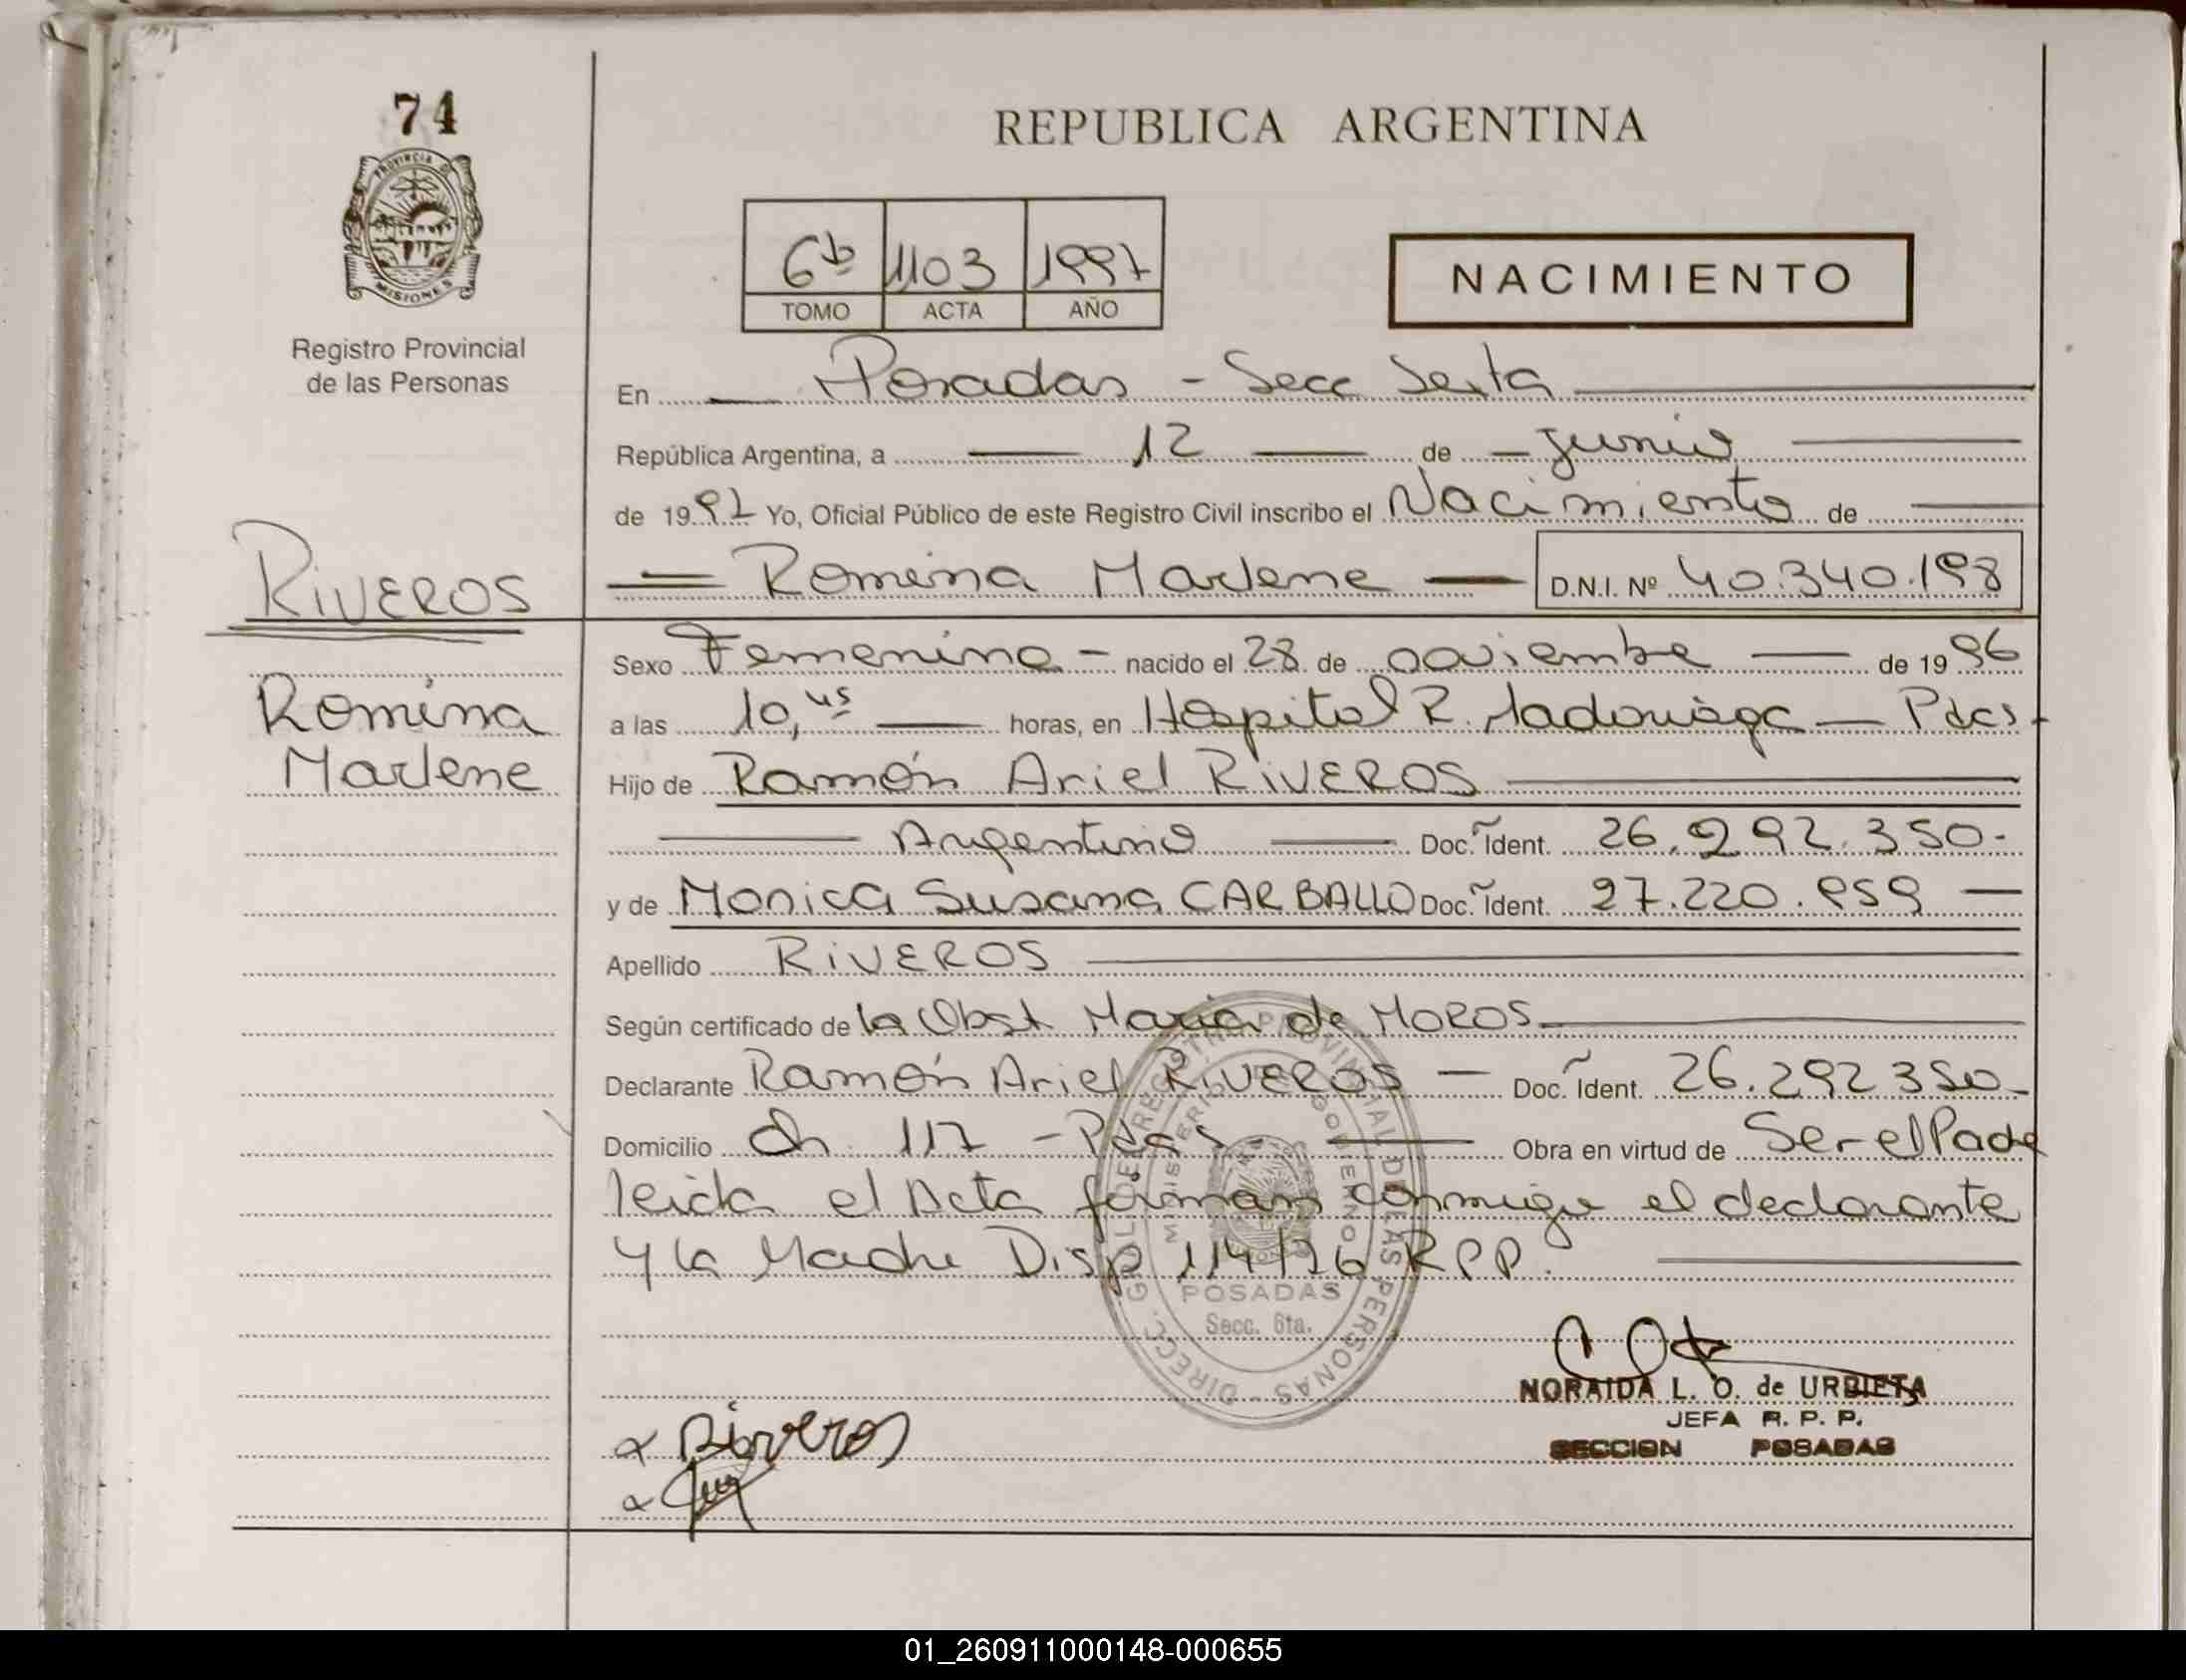 74
PROVINCIA DE
MISIONES
Registro Provincial
de las Personas
REPUBLICA ARGENTINA
6to 1103 1997
TOMO ACTA AÑO
NACIMIENTO
En Posadas - Secc Sexta
República Argentina, a 12 de junio
de 1997 Yo, Oficial Público de este Registro Civil inscribo el Nacimiento de
RIVEROS
Romina Marlene D.N.I. Nº 40.340.198
Romina
Marlene
Sexo Femenino - nacido el 28 de noviembre de 1996
a las 10,45 horas, en Hospital R. Madariaga - Pdas-
Hijo de Ramón Ariel RIVEROS
Argentino Doc. Ident. 26.292.350-
y de Monica Susana CARBALLO Doc. Ident. 27.220.959
Apellido RIVEROS
Según certificado de la Obst Maria de MOROS
Declarante Ramón Ariel RIVEROS - Doc. Ident. 26.292 350-
Domicilio Ch. 117 - Pdas - Obra en virtud de Ser el Padre
leida el Acta firman conmigo el declarante
y la Madre Disp 114/76 RPP.
DIRECC. GRAL DEL REGISTRO PROVINCIAL DE LAS PERSONAS
MINISTERIO DE GOBIERNO
POSADAS
Secc. 6ta.
NORAIDA L. O. de URBIETA
JEFA R. P. P.
SECCION POSADAS
x Riveros
x
01_260911000148-000655